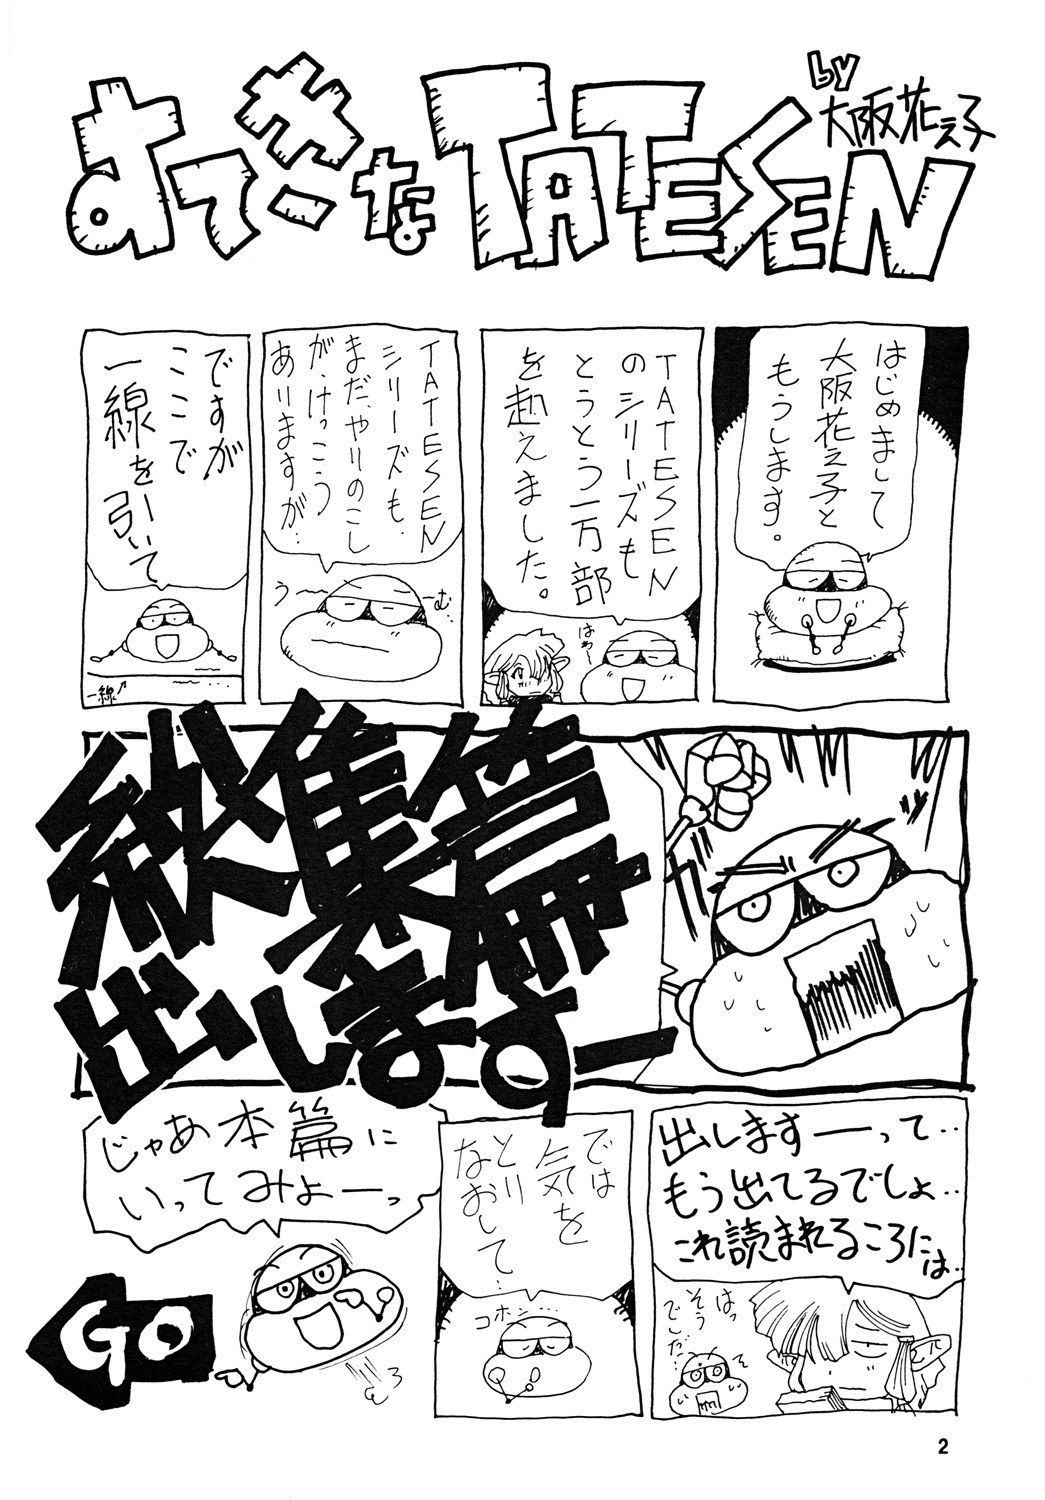 すてきなTATESEN
by
大阪花え子
はじめまして
大阪花え子と
もうします。
TATESEN
のシリーズも
とうとう一万部
を越えました。
はわー
TATESEN
シリーズも、
まだ、やりのこし
が、けっこう
ありますが、
うー〜ーむ…
ですが
ここで
一線を引いて
一線↗
縦集篇
出しますー
ガッ
出しますーって‥
もう出てるでしょ‥
これ読まれるころには‥
はっ
そう
でした…
では
気を
とり
なおして‥
コホン…
じゃあ本篇に
いってみよーっ
GO
2